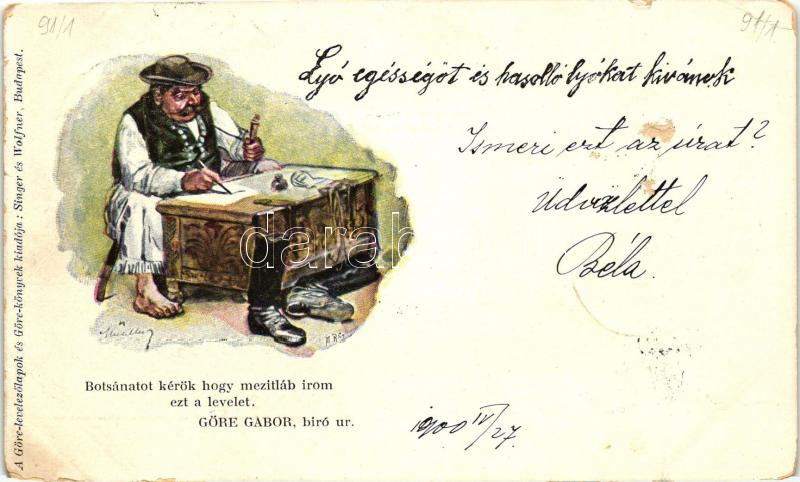 91/1
91/1
Lyó egésségöt és hasolló lyókat kivánok
Ismeri ezt az úrat?
Üdvözlettel
Béla.
darab
Botsánatot kérök hogy mezitláb irom
ezt a levelet.
GÖRE GABOR, biró ur.
1900 IV/27
A Göre-levelezőlapok és Göre-könyvek kiadója: Singer és Wolfner, Budapest.